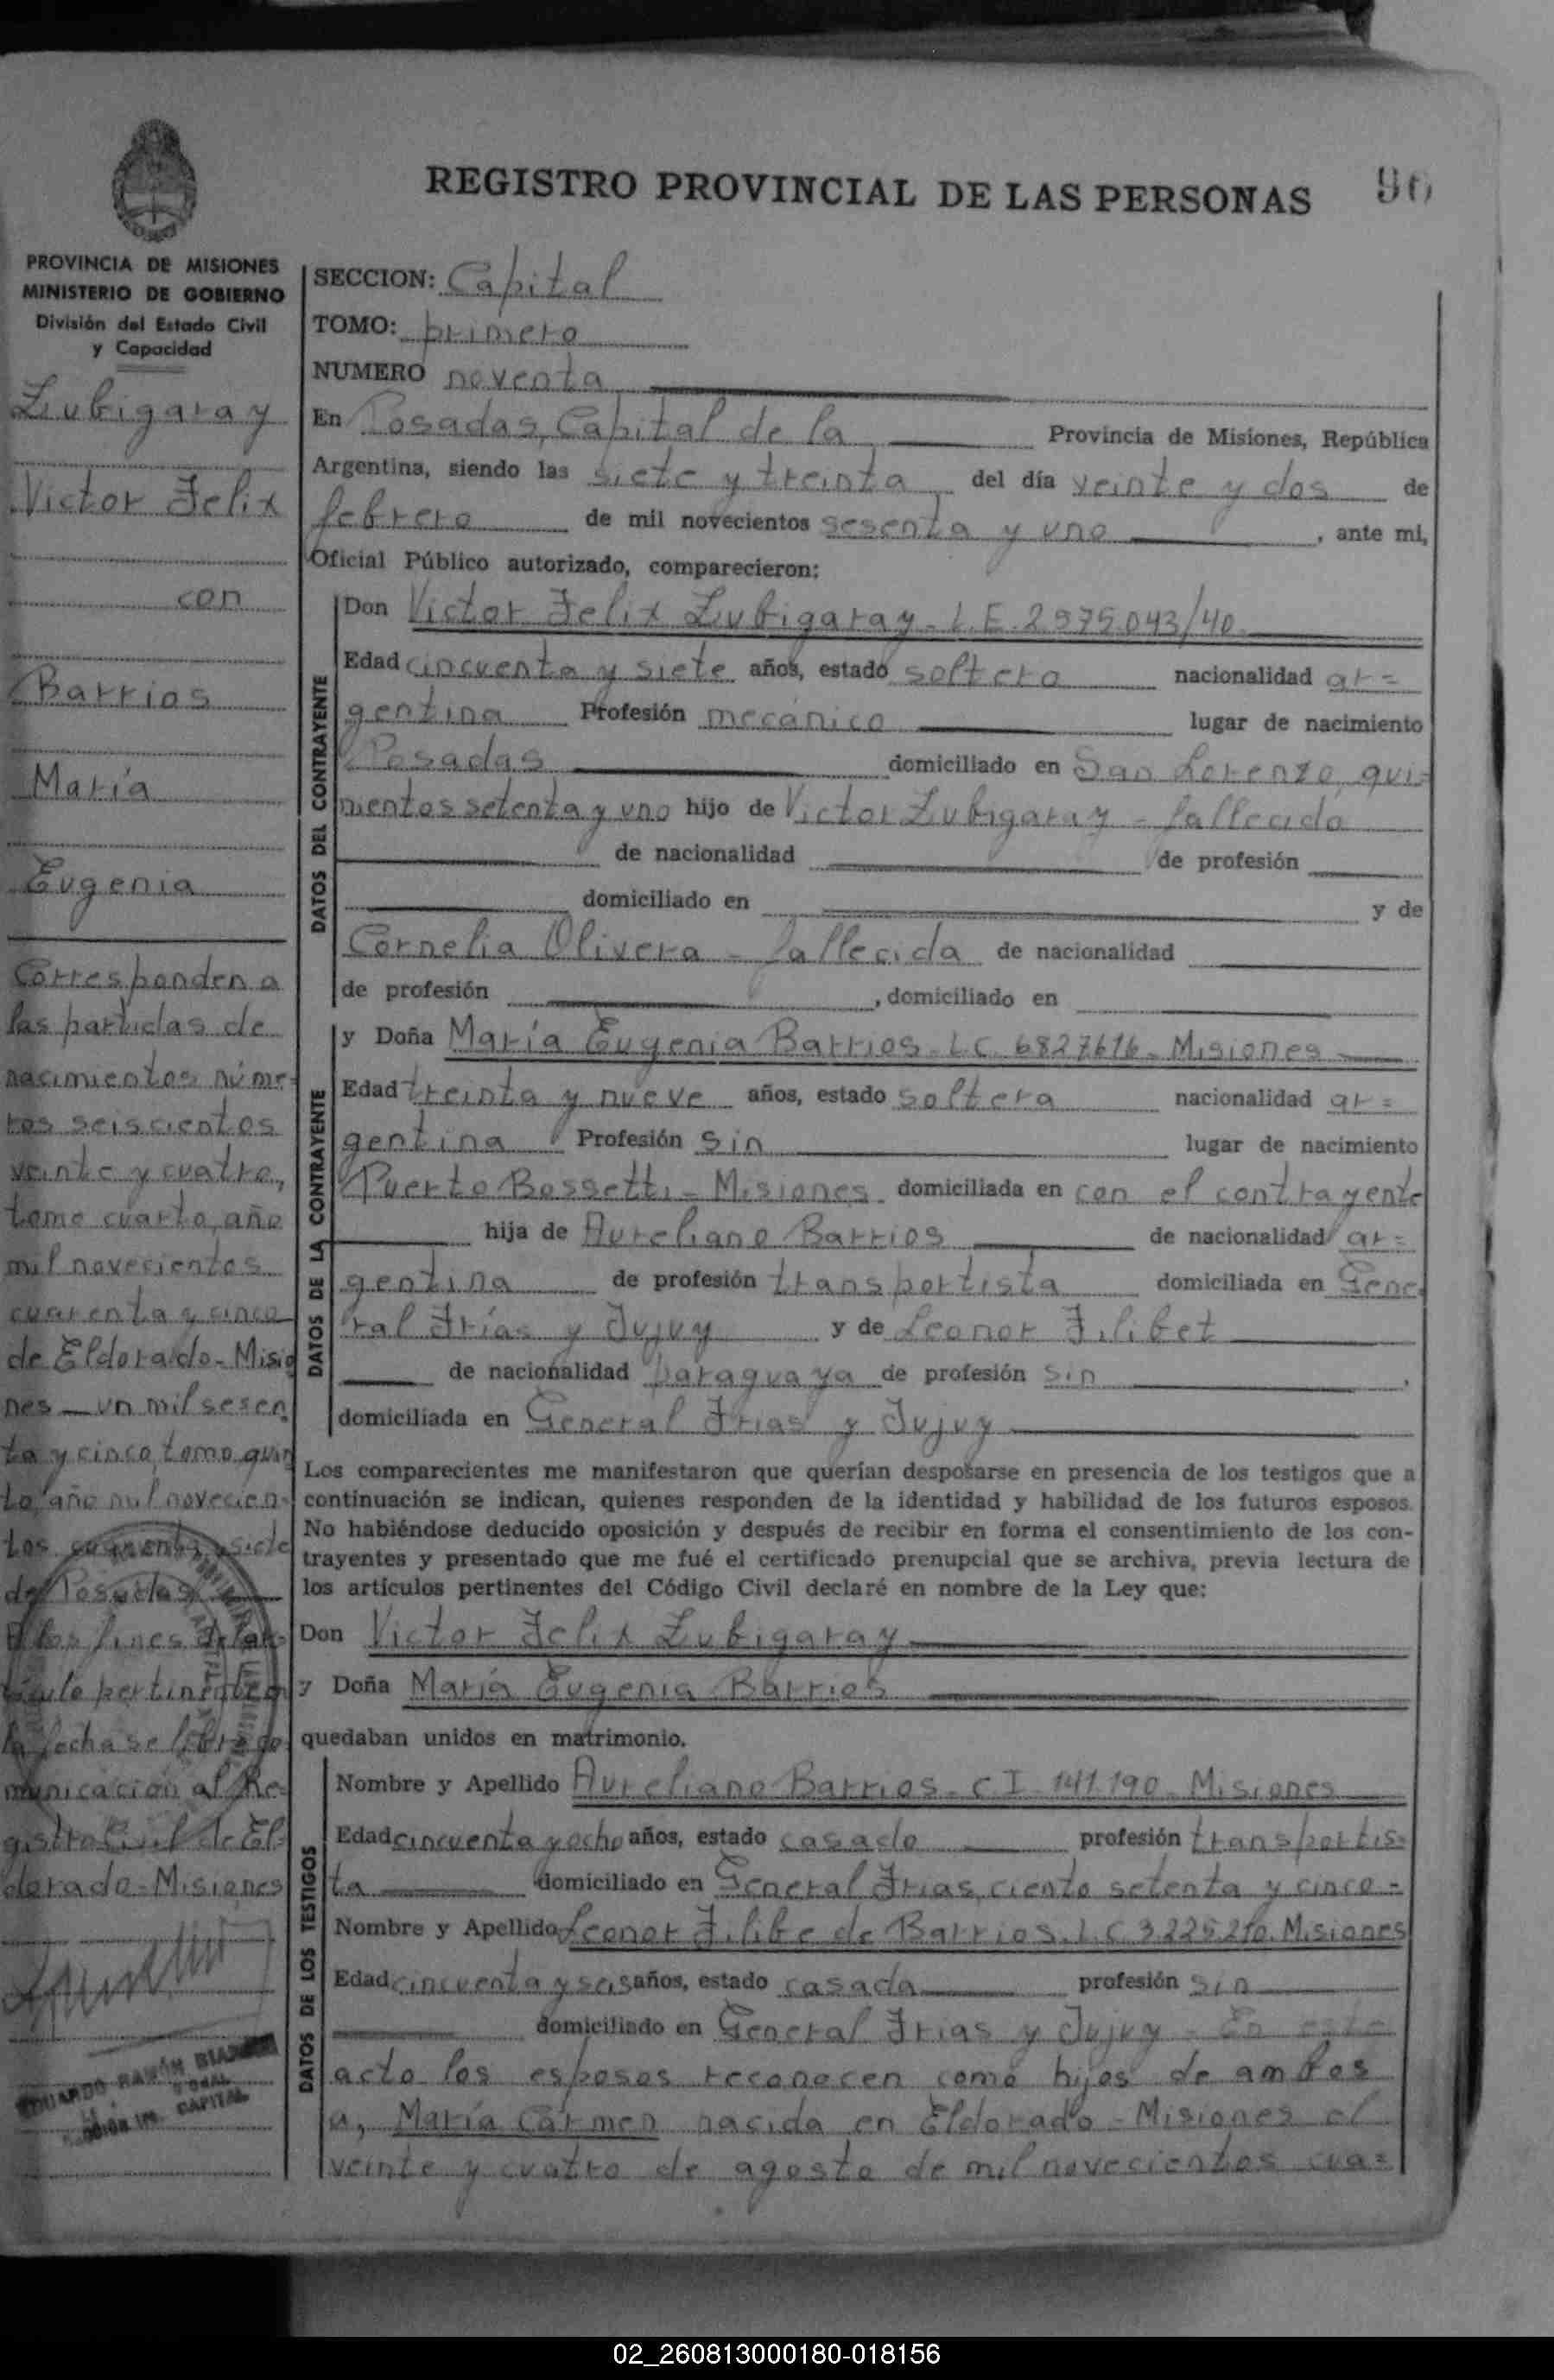 REGISTRO PROVINCIAL DE LAS PERSONAS
90
PROVINCIA DE MISIONES
MINISTERIO DE GOBIERNO
División del Estado Civil
y Capacidad
Zubigaray
Victor Felix
con
Barrios
María
Eugenia
Corresponden a
las partidas de
nacimientos núme=
ros seiscientos
veinte y cuatro,
tomo cuarto, año
mil novecientos
cuarenta y cinco
de Eldorado - Misio
nes — un mil sesen
ta y cinco, tomo quin
to, año mil novecien-
tos cuarenta y siete
de Posadas
A los fines del ar-
tículo pertinente en
la fecha se libra co
municación al Re-
gistro Civil de El-
dorado - Misiones
EDUARDO RAMÓN
CAPITAL
SECCION: Capital
TOMO: primero
NUMERO noventa
En Posadas, Capital de la Provincia de Misiones, República
Argentina, siendo las siete y treinta del día veinte y dos de
febrero de mil novecientos sesenta y uno, ante mi,
Oficial Público autorizado, comparecieron:
DATOS DEL CONTRAYENTE
Don Victor Felix Zubigaray - L.E. 2975.043/40
Edad cincuenta y siete años, estado soltero nacionalidad ar=
gentina Profesión mecánico lugar de nacimiento
Posadas domiciliado en San Lorenzo, qui=
nientos setenta y uno hijo de Victor Zubigaray - fallecido
de nacionalidad de profesión
domiciliado en y de
Cornelia Olivera - fallecida de nacionalidad
de profesión , domiciliado en
DATOS DE LA CONTRAYENTE
y Doña María Eugenia Barrios - L.C. 6827616 - Misiones
Edad treinta y nueve años, estado soltera nacionalidad ar=
gentina Profesión sin lugar de nacimiento
Puerto Bossetti - Misiones. domiciliada en con el contrayente
hija de Aureliano Barrios de nacionalidad ar=
gentina de profesión transportista domiciliada en Gene
ral Frías y Jujuy y de Leonor Filibet
de nacionalidad paraguaya de profesión sin ,
domiciliada en General Frias y Jujuy
Los comparecientes me manifestaron que querían desposarse en presencia de los testigos que a
continuación se indican, quienes responden de la identidad y habilidad de los futuros esposos.
No habiéndose deducido oposición y después de recibir en forma el consentimiento de los con-
trayentes y presentado que me fué el certificado prenupcial que se archiva, previa lectura de
los artículos pertinentes del Código Civil declaré en nombre de la Ley que:
Don Victor Felix Zubigaray
y Doña María Eugenia Barrios
quedaban unidos en matrimonio.
DATOS DE LOS TESTIGOS
Nombre y Apellido Aureliano Barrios - C I - 141.190 - Misiones
Edad cincuenta y ocho años, estado casado profesión transportis=
ta domiciliado en General Frias, ciento setenta y cinco -
Nombre y Apellido Leonor Filibe de Barrios. L.C 3.225.210. Misiones
Edad cincuenta y seis años, estado casada profesión sin
domiciliado en General Frias y Jujuy - En este
acto los esposos reconocen como hijos de ambos
a, María Cármen nacida en Eldorado - Misiones el
veinte y cuatro de agosto de mil novecientos cua=
02_260813000180-018156